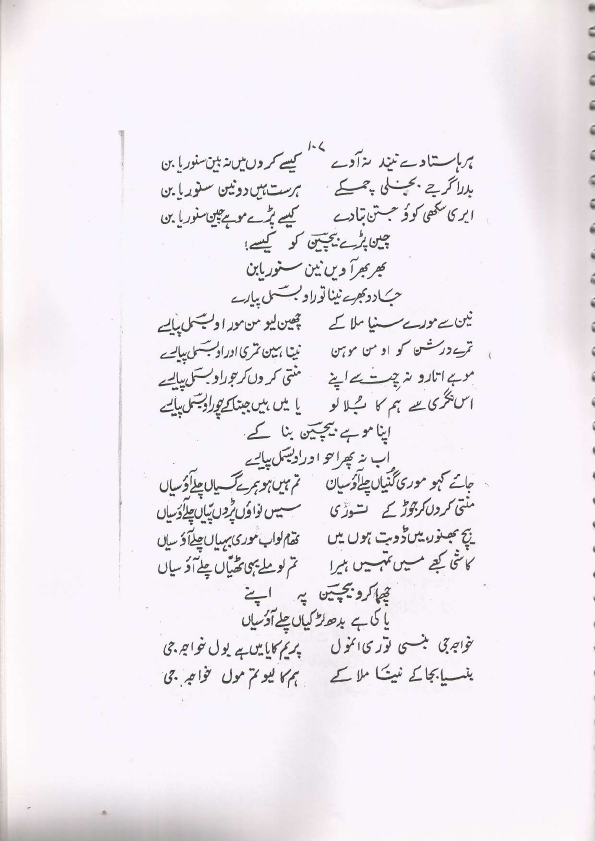 ۱۰۷
برہا ستاوے نیند نہ آوے کیسے کروں میں نہ بین سنوریا بن
بدرا گرجے بجلی چمکے برست ہیں دو نین سنوریا بن
ایری سکھی کوؤ جتن بتادے کیسے پڑے موہے چین سنوریا بن
چین پڑے بیچین کو کیسے!
بھر بھر آویں نین سنوریا بن
جادو بھرے نینا تورا وبسمل پیارے
نین سے مورے سنیا ملا کے چھین لیو من مورا وبسمل پیارے
تمرے درشن کو او من موہن نینا ہیں تمری اورا وبسمل پیارے
موہے اتارو نہ چت سے اپنے منتی کروں کر جورا وبسمل پیارے
اس نگری سے ہم کا بُلا لو یا میں ہیں جینا کے چورا وبسمل پیارے
اپنا موہے بیچین بنا کے
اب نہ پھرا جو اورا وبسمل پیارے
جائے کہو موری گنیاں چلے آؤ سیاں تم ہیں ہو ہمرے گسیاں چلے آؤ سیاں
منتی کروں کر جوڑ کے توری سیس نواؤں پڑوں پیاں چلے آؤ سیاں
بیچ بھنور میں ڈوبت ہوں میں تھام لو اب موری بہیاں چلے آؤ سیاں
کاشی کعبے میں تمہیں ہیرا تم تو ملے یہی ٹھیاں چلے آؤ سیاں
چھما کرو بیچین پہ اپنے
یا کی ہے بدھ لڑکیاں چلے آؤ سیاں
خواجہ جی بنسی توری انمول پریم کا یا میں ہے بول خواجہ جی
بنسیا بجا کے نینا ملا کے ہم کا لیو تم مول خواجہ جی